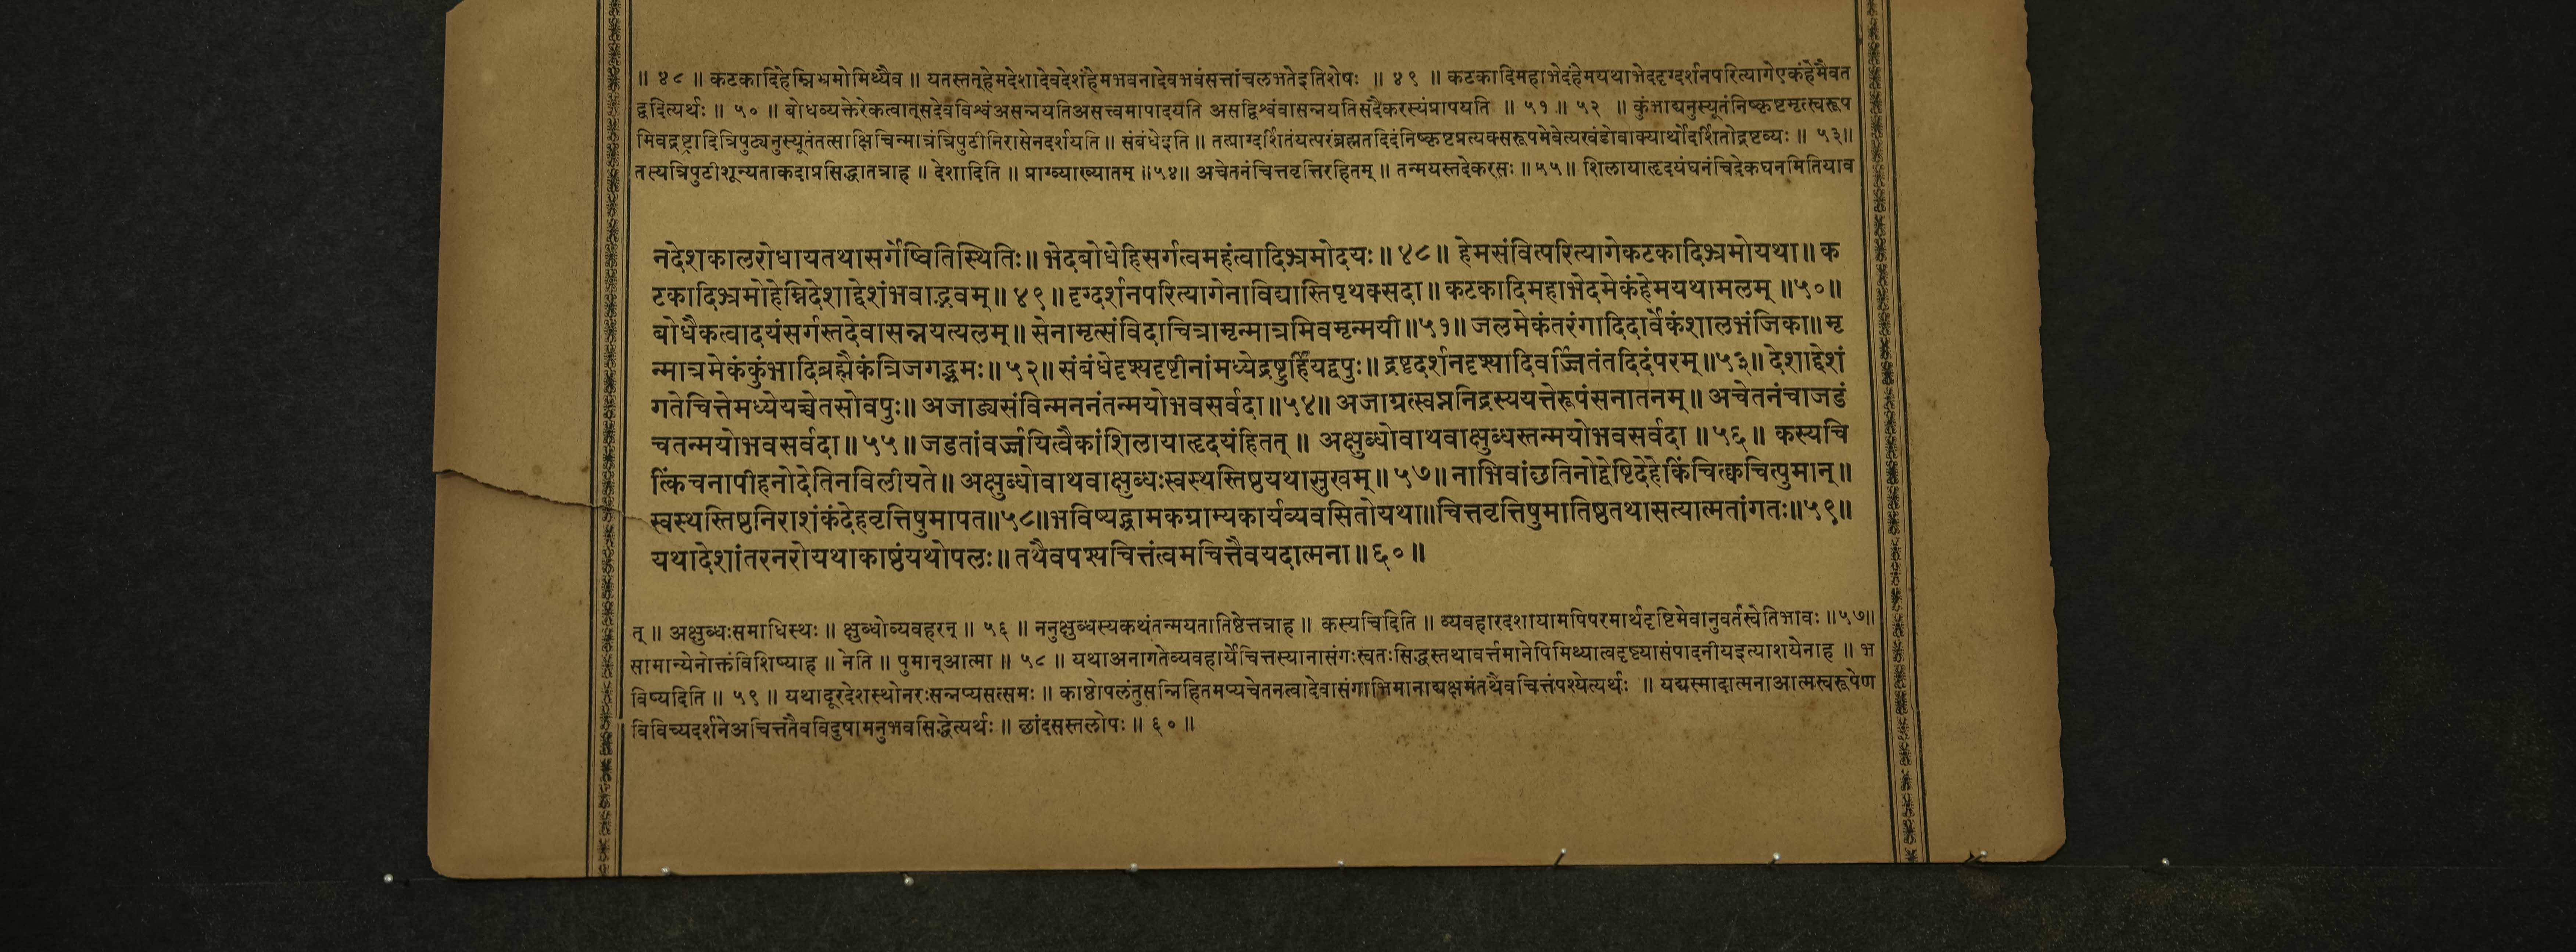 ॥ ४८ ॥ कटकादिहेम्निभ्रमोमिथ्यैव ॥ यतस्तत्‌हेमदेशादेवदेशंहेमभवनादेवभवंसत्तांचलभतेइतिशेषः ॥ ४९ ॥ कटकादिमहाभेदंहेमयथाभेददृग्दर्शनपरित्यागेएकंहेमैवत
द्वदित्यर्थः ॥ ५० ॥ बोधव्यक्तेरेकत्वात्‌सदेवविश्वंअसन्नयतिअसत्त्वमापादयति असद्विश्वंवासन्नयतिसदैकरस्यंप्रापयति ॥ ५१ ॥ ५२ ॥ कुंभाद्यनुस्यूतंनिष्कृष्टमृत्स्वरूप
मिवद्रष्ट्रादित्रिपुट्यनुस्यूतंतत्साक्षिचिन्मात्रंत्रिपुटीनिरासेनदर्शयति ॥ संबंधेइति ॥ तत्प्राग्दर्शितंयत्परंब्रह्मतदिदंनिष्कृष्टप्रत्यक्सरूपमेवेत्यखंडोवाक्यार्थोदर्शितोद्रष्टव्यः ॥ ५३॥
तस्यत्रिपुटीशून्यताकदाप्रसिद्धातत्राह ॥ देशादिति ॥ प्राग्व्याख्यातम् ॥५४॥ अचेतनंचित्तवृत्तिरहितम् ॥ तन्मयस्तदेकरसः ॥ ५५ ॥ शिलायाहृदयंघनंचिदेकघनमितियाव
नदेशकालरोधायतथासर्गेष्वितिस्थितिः॥ भेदबोधेहिसर्गत्वमहंत्वादिभ्रमोदयः॥ ४८॥ हेमसंवित्परित्यागेकटकादिभ्रमोयथा॥ क
टकादिभ्रमोहेम्निदेशाद्देशंभवाद्भवम्॥ ४९॥ दृग्दर्शनपरित्यागेनाविद्यास्तिपृथक्सदा॥ कटकादिमहाभेदमेकंहेमयथामलम् ॥५०॥
बोधैकत्वादयंसर्गस्तदेवासन्नयत्यलम्॥ सेनामृत्संविदाचित्रामृन्मात्रमिवमृन्मयी॥५१॥ जलमेकंतरंगादिदार्वेकंशालभंजिका॥ मृ
न्मात्रमेकंकुंभादिब्रह्मैकंत्रिजगद्भ्रमः॥ ५२॥ संबंधेदृश्यदृष्टीनांमध्येद्रष्टुर्हियद्वपुः॥ द्रष्टृदर्शनदृश्यादिवर्ज्जितंतदिदंपरम् ॥५३॥ देशाद्देशं
गतेचित्तेमध्येयच्चेतसोवपुः॥ अजाड्यसंविन्मननंतन्मयोभवसर्वदा॥५४॥ अजाग्रत्स्वप्ननिद्रस्ययत्तेरूपंसनातनम्॥ अचेतनंचाजडं
चतन्मयोभवसर्वदा॥ ५५॥ जडतांवर्ज्जयित्वैकांशिलायाहृदयंहितत् ॥ अक्षुब्धोवाथवाक्षुब्धस्तन्मयोभवसर्वदा ॥५६॥ कस्यचि
त्किंचनापीहनोदेतिनविलीयते॥ अक्षुब्धोवाथवाक्षुब्धःस्वस्थस्तिष्ठयथासुखम्॥ ५७॥ नाभिवांछतिनोद्वेष्टिदेहेकिंचित्क्वचित्पुमान्॥
स्वस्थस्तिष्ठनिराशंकंदेहवृत्तिषुमापत॥५८॥भविष्यद्ग्रामकग्राम्यकार्यव्यवसितोयथा॥चित्तवृत्तिषुमातिष्ठतथासत्यात्मतांगतः॥५९॥
यथादेशांतरनरोयथाकाष्ठंयथोपलः॥ तथैवपश्यचित्तंत्वमचित्तैवयदात्मना॥६०॥
त् ॥ अक्षुब्धःसमाधिस्थः ॥ क्षुब्धोव्यवहरन् ॥ ५६ ॥ ननुक्षुब्धस्यकथंतन्मयतातिष्ठेत्तत्राह ॥ कस्यचिदिति ॥ व्यवहारदशायामपिपरमार्थदृष्टिमेवानुवर्तस्वेतिभावः ॥५७॥
सामान्येनोक्तंविशिष्याह ॥ नेति ॥ पुमान्‌आत्मा ॥ ५८ ॥ यथाअनागतेव्यवहार्येचित्तस्यानासंगःस्वतःसिद्धस्तथावर्त्तमानेपिमिथ्यात्वदृष्ट्यासंपादनीयइत्याशयेनाह ॥ भ
विष्यदिति ॥ ५९ ॥ यथादूरदेशस्थोनरःसन्नप्यसत्समः ॥ काष्ठोपलंतुसन्निहितमप्यचेतनत्वादेवासंगाभिमानाद्यक्षमंतथैवचित्तंपश्येत्यर्थः ॥ यद्यस्मादात्मनाआत्मस्वरूपेण
विविच्यदर्शनेअचित्ततैवविदुषामनुभवसिद्धेत्यर्थः ॥ छांदसस्तलोपः ॥ ६० ॥